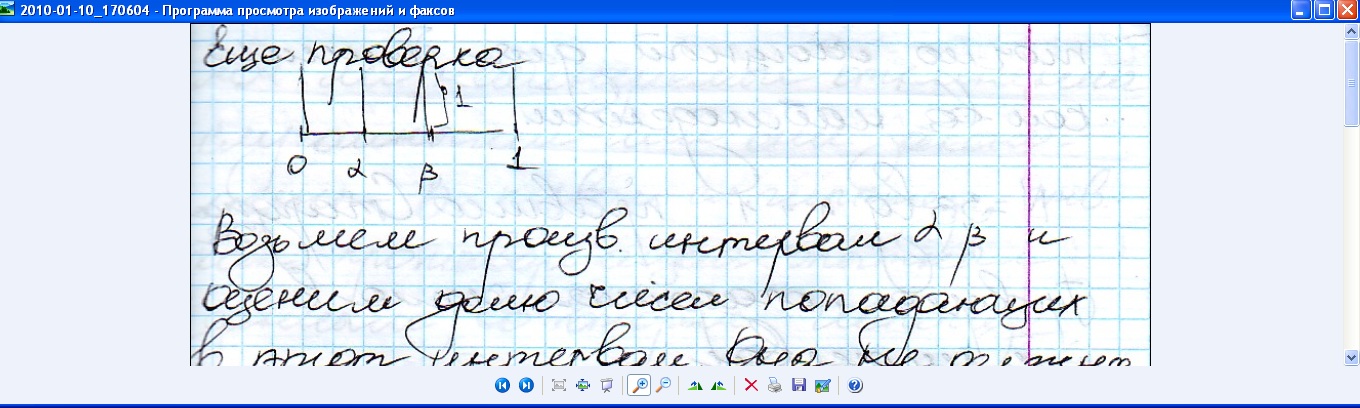 2010-01-10_170604 - Программа просмотра изображений и факсов
Еще проверка
1
0 α β 1
Возьмем произв. интервал α β и
оценим долю чисел попадающих
в этот интервал. Она не